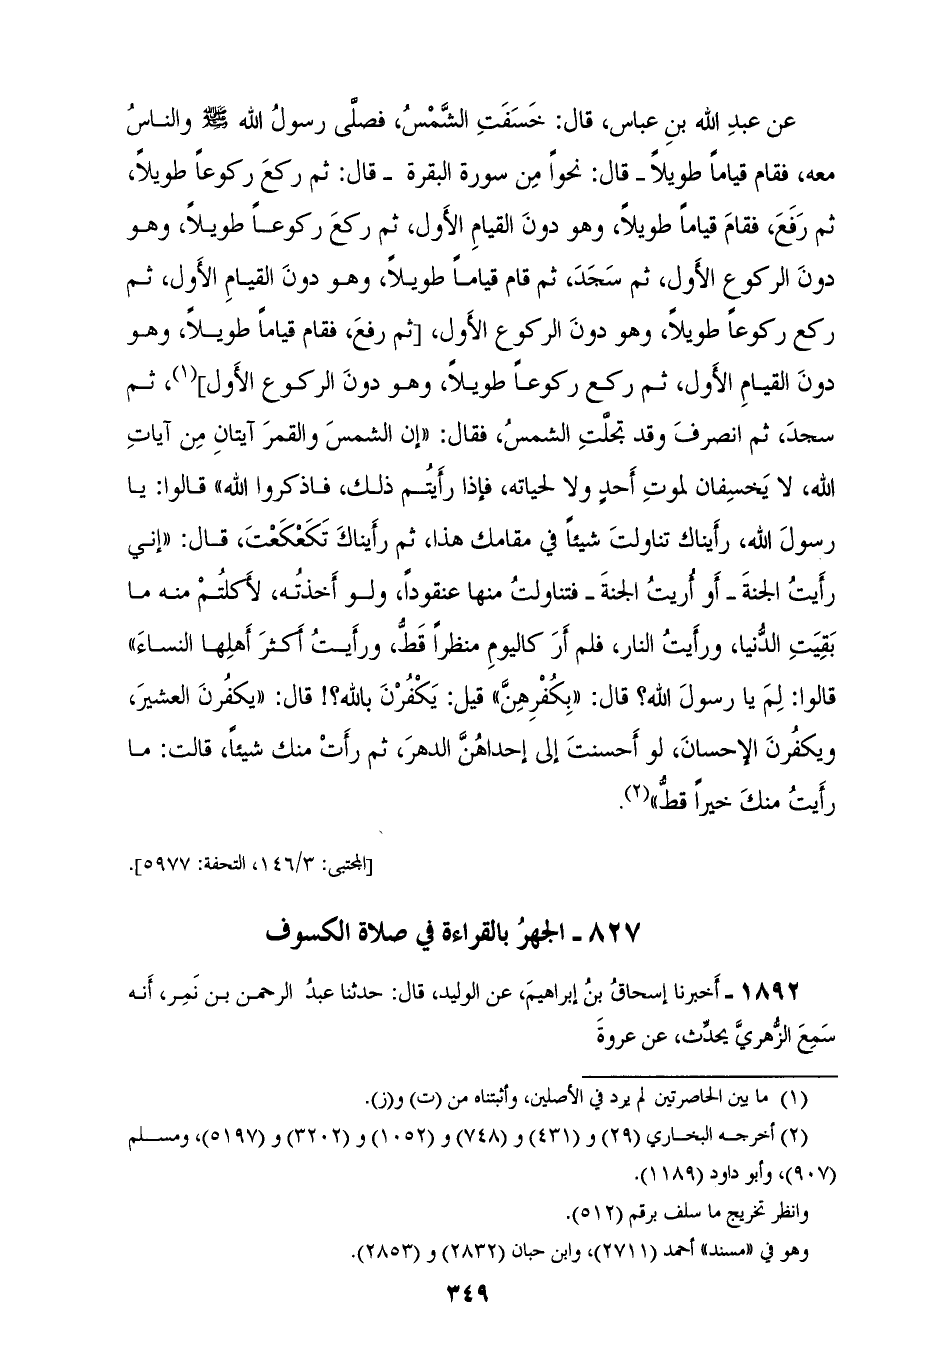 عن عبدِ الله بنِ عباس، قال: خَسَفَتِ الشَّمْسُ، فصلَّى رسولُ الله ﷺ والناسُ
معه، فقام قياماً طويلاً ـ قال: نحواً مِن سورة البقرة ـ قال: ثم ركعَ ركوعاً طويلاً،
ثم رَفَعَ، فقامَ قياماً طويلاً، وهو دونَ القيامِ الأَول، ثم ركعَ ركوعـاً طويـلاً، وهـو
دونَ الركوع الأَول، ثم سَجَدَ، ثم قام قيامـاً طويـلاً، وهـو دونَ القيـامِ الأَول، ثـم
ركع ركوعاً طويلاً، وهو دونَ الركوع الأَول، [ثم رفعَ، فقام قياماً طويـلاً، وهـو
دونَ القيـامِ الأَول، ثـم ركـع ركوعـاً طويـلاً، وهـو دونَ الركـوع الأَول](١)، ثـم
سجدَ، ثم انصرفَ وقد تجلَّتِ الشمسُ، فقال: «إن الشمسَ والقمرَ آيتانِ مِن آياتِ
الله، لا يَخسِفان لموتِ أَحدٍ ولا لحياته، فإذا رأَيتُـم ذلـك، فـاذكروا الله» قـالوا: يـا
رسولَ الله، رأَيناك تناولتَ شيئاً في مقامك هذا، ثم رأَيناكَ تَكَعْكَعْتَ، قـال: «إنـي
رأَيتُ الجنةَ ـ أَو أُريتُ الجنةَ ـ فتناولتُ منها عنقوداً، ولـو أَخذتُـه، لأَكلتُـمْ منـه مـا
بَقِيَتِ الدُّنيا، ورأَيتُ النار، فلم أَرَ كاليومِ منظراً قَطُّ، ورأَيـتُ أَكثـرَ أَهلِهـا النسـاءَ»
قالوا: لِمَ يا رسولَ الله؟ قال: «بِكُفْرِهِنَّ» قيل: يَكْفُرْنَ بالله؟! قال: «يكفُرنَ العشيرَ،
ويكفُرنَ الإحسانَ، لو أَحسنتَ إلى إحداهُنَّ الدهرَ، ثم رأَتْ منك شيئاً، قالت: مـا
رأَيتُ منكَ خيراً قطُّ»(٢).
[المجتبى: ١٤٦/٣، التحفة: ٥٩٧٧].
٨٢٧ ـ الجهرُ بالقراءة في صلاة الكسوف
١٨٩٢ ـ أَخبرنا إسحاقُ بنُ إبراهيمَ، عن الوليد، قال: حدثنا عبدُ الرحمـن بـن نَمِـر، أَنـه
سَمِعَ الزُّهريَّ يحدِّث، عن عروةَ
(١) ما بين الحاصرتين لم يرد في الأصلين، وأثبتناه من (ت) و(ز).
(٢) أخرجـه البخـاري (٢٩) و (٤٣١) و (٧٤٨) و (١٠٥٢) و (٣٢٠٢) و (٥١٩٧)، ومسـلم
(٩٠٧)، وأبو داود (١١٨٩).
وانظر تخريج ما سلف برقم (٥١٢).
وهو في «مسند» أحمد (٢٧١١)، وابن حبان (٢٨٣٢) و (٢٨٥٣).
٣٤٩